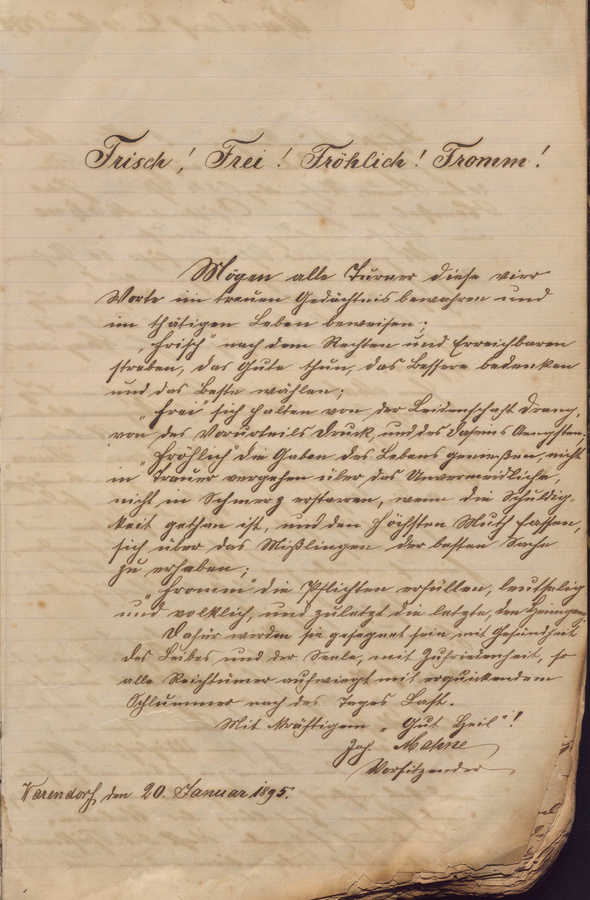 Frisch! Frei! Fröhlich! Fromm!
Mögen alle Turner diese vier
Worte im treuen Gedächtnis bewahren und
im thätigen Leben beweisen;
„Frisch" nach dem Rechten und Erreichbaren
streben, das Gute thun, das Bessere bedenken
und das Beste wählen;
„Frei" sich halten von der Leidenschaft Drang,
von des Vorurteils Druck, und des Daseins Aengsten,
„Fröhlich" die Gaben des Lebens genießen, nicht
in Trauer vergehen über das Unvermeidliche,
nicht in Schmerz erstarren, wenn die Schuldig-
keit gethan ist, und den höchsten Muth fassen,
sich über das Mißlingen der besten Sache
zu erheben;
„Fromm" die Pflichten erfüllen, leutselig
und volklich, und zuletzt die letzte, den Heimgang.
Dafür werden sie gesegnet sein mit Gesundheit
des Leibes und der Seele, mit Zufriedenheit, so
alle Reichtümer aufwiegt mit erquickendem
Schlummer nach des Tages Last.
Mit kräftigem „Gut Heil"!
Joh. Mahne
Vorsitzender
den 20. Januar 1895.